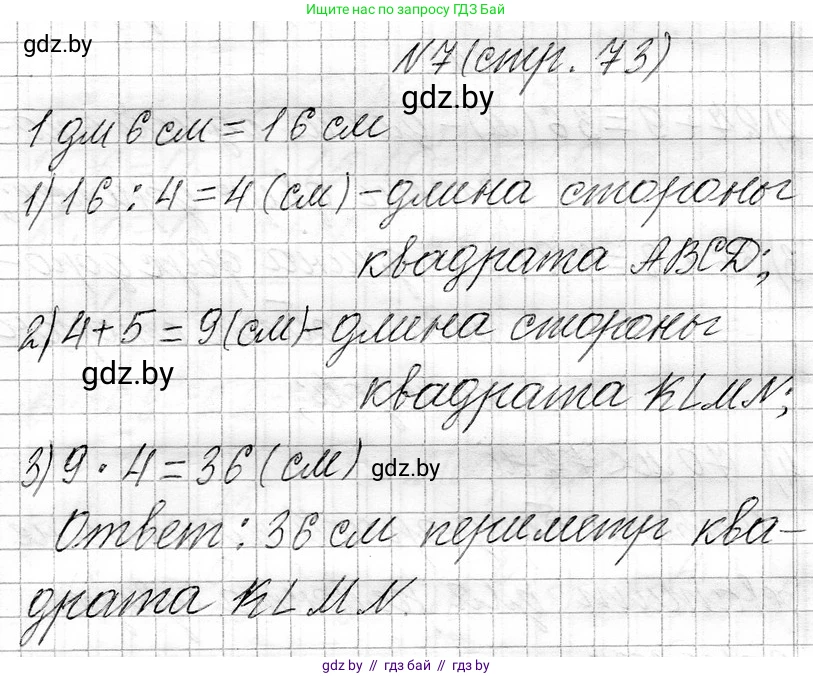 Ищите нас по запросу ГДЗ Бай
gdz.by
N7 (стр. 73)
gdz.by
1 дм 6 см = 16 см
1) 16 : 4 = 4 (см) - длина стороны
квадрата ABCD;
2) 4 + 5 = 9 (см) - длина стороны
gdz.by
квадрата KLMN;
3) 9 · 4 = 36 (см)
gdz.by
Ответ: 36 см периметр ква-
драта KLMN.
gdz.by // гдз бай // gdz.by